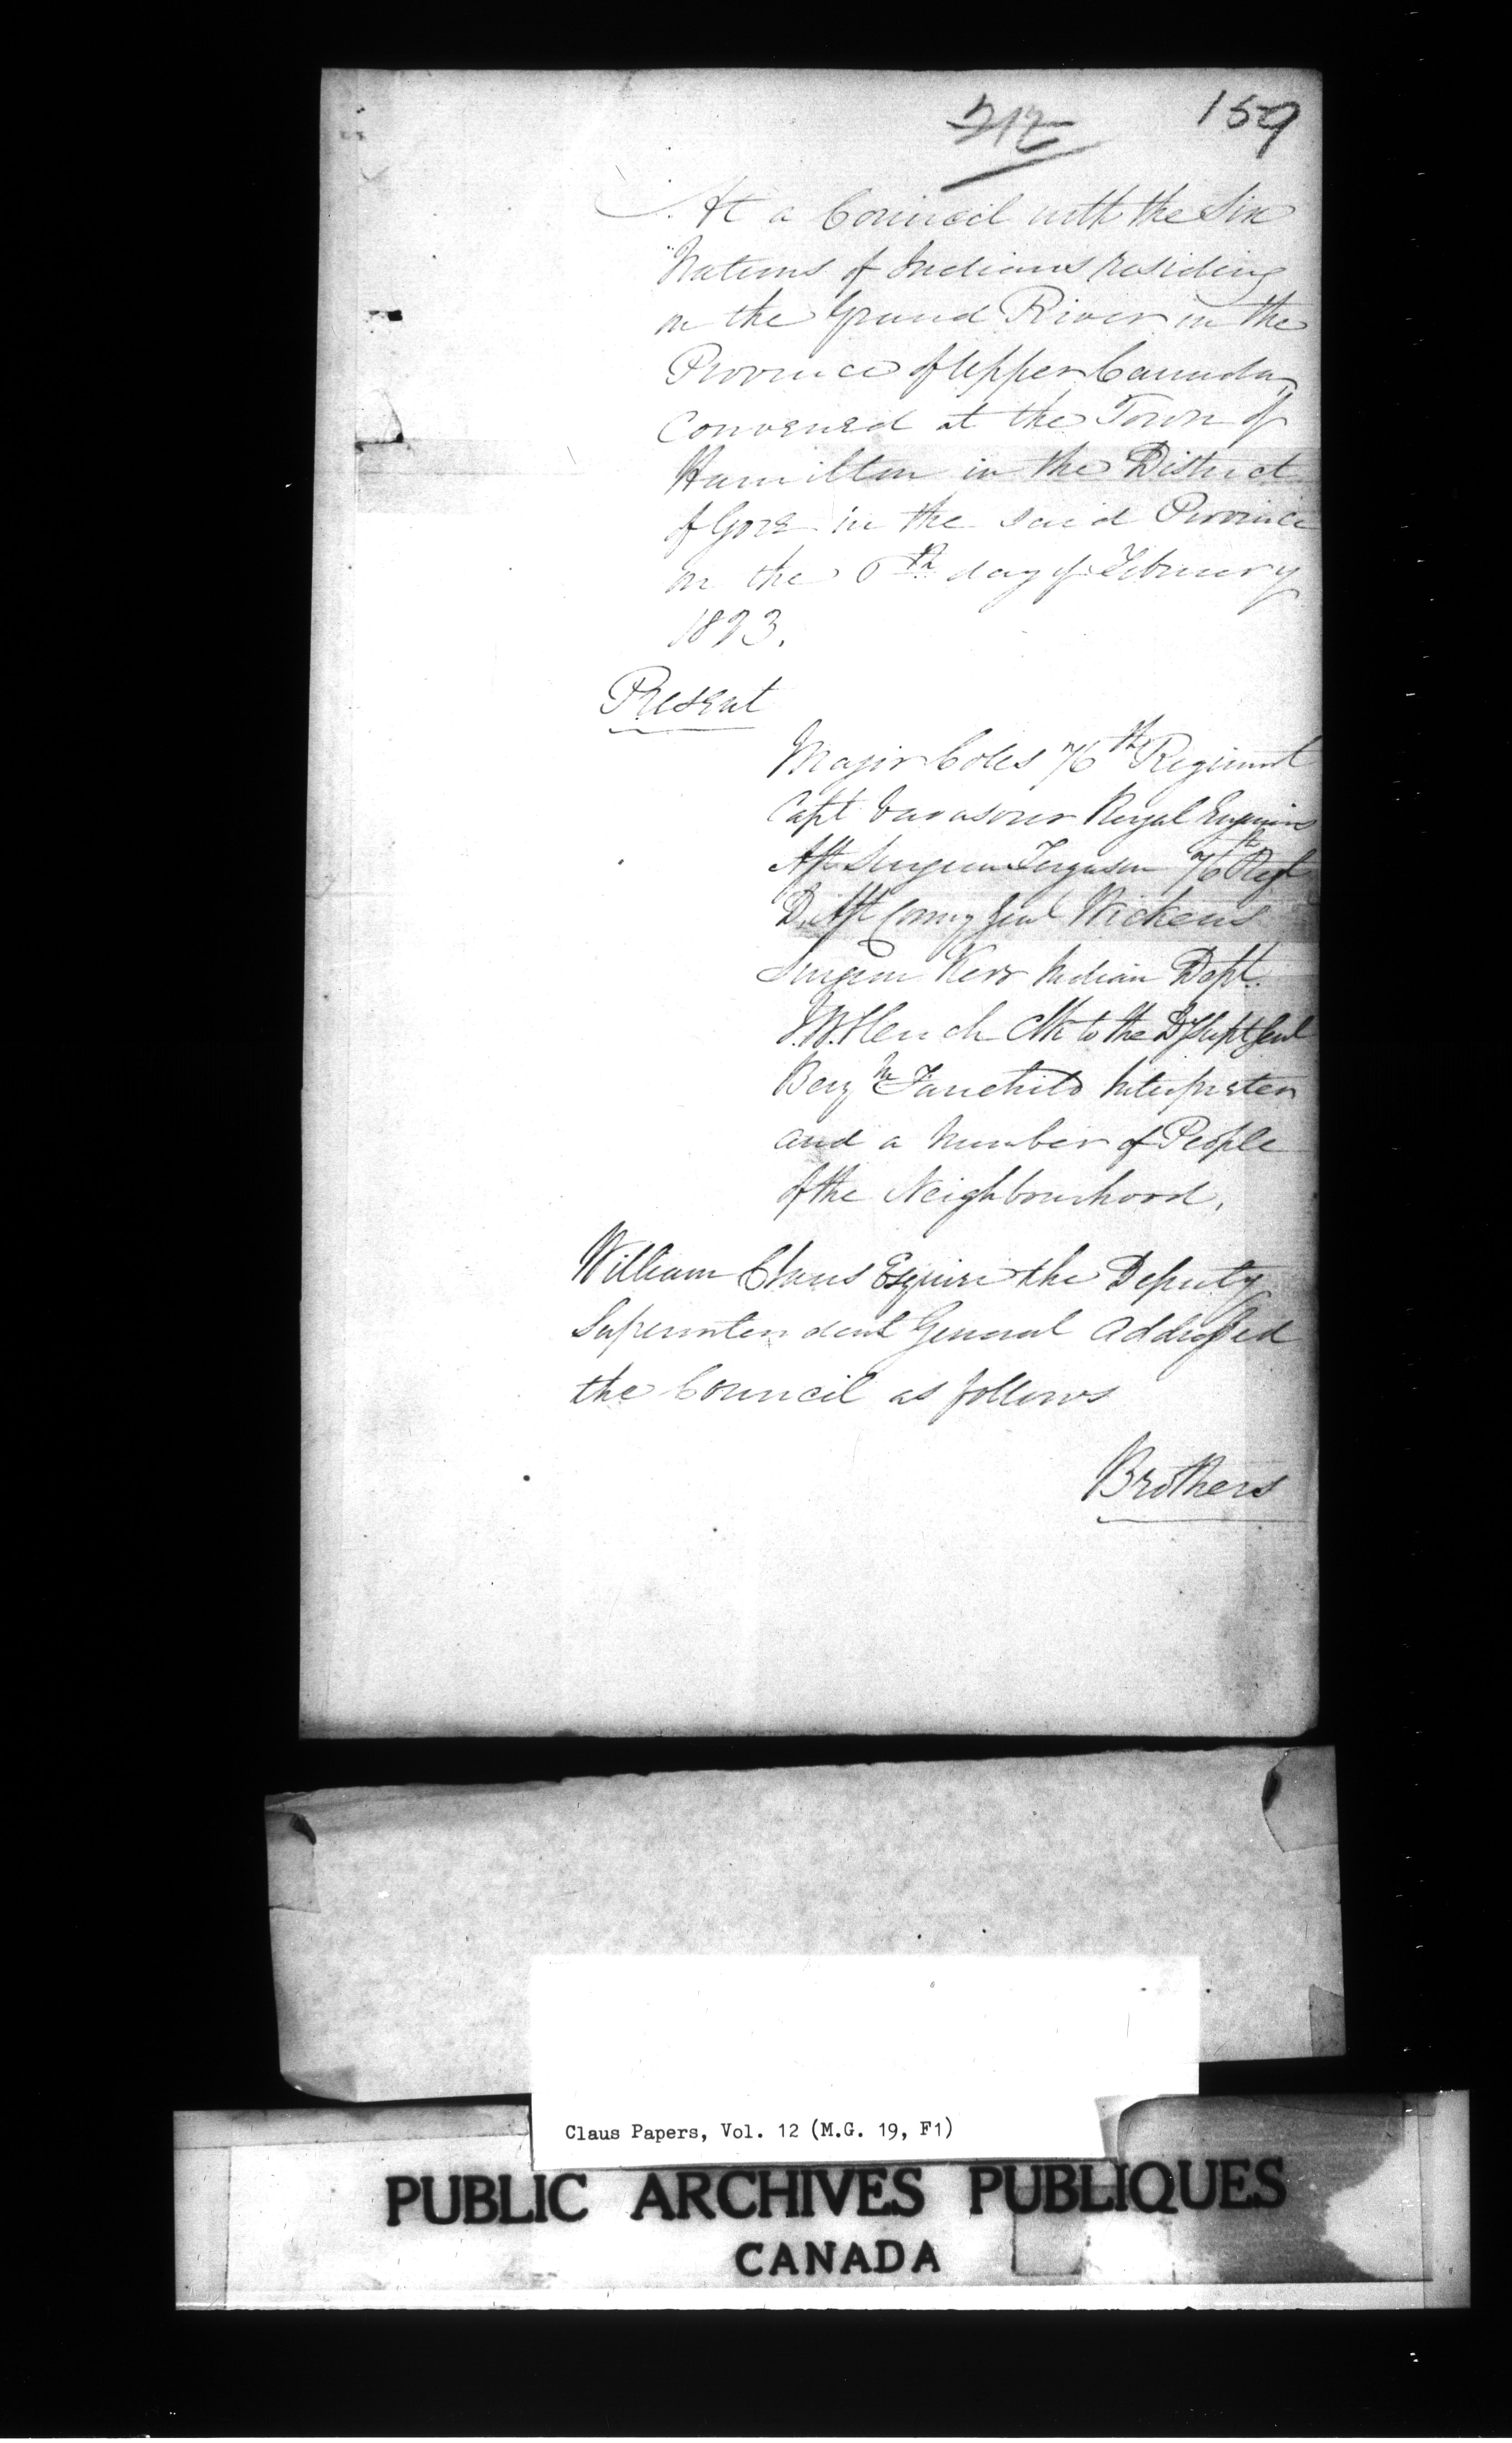 212 159
At a Council with the Six
Nations of Indians residing
on the Grand River in the
Province of Upper Canada
Convened at the Town of
Hamilton in the District
of Gore in the said Province
on the 6th day of February
1823.
Present
Major Coles 76th Regiment
Capt Vavasour Royal Engineers
Asst Surgeon Ferguson 76th Regt
D. Asst Comy Genl Wickens
Surgeon Kerr Indian Dept.
J.B. Clench Clk to the Dy Supt Genl
Benjn Fairchild Interpreter
and a Number of People
of the Neighbourhood.
William Claus Esquire the Deputy
Superintendent General Addressed
the Council as follows
Brothers
Claus Papers, Vol. 12 (M.G. 19, F1)
PUBLIC ARCHIVES PUBLIQUES
CANADA